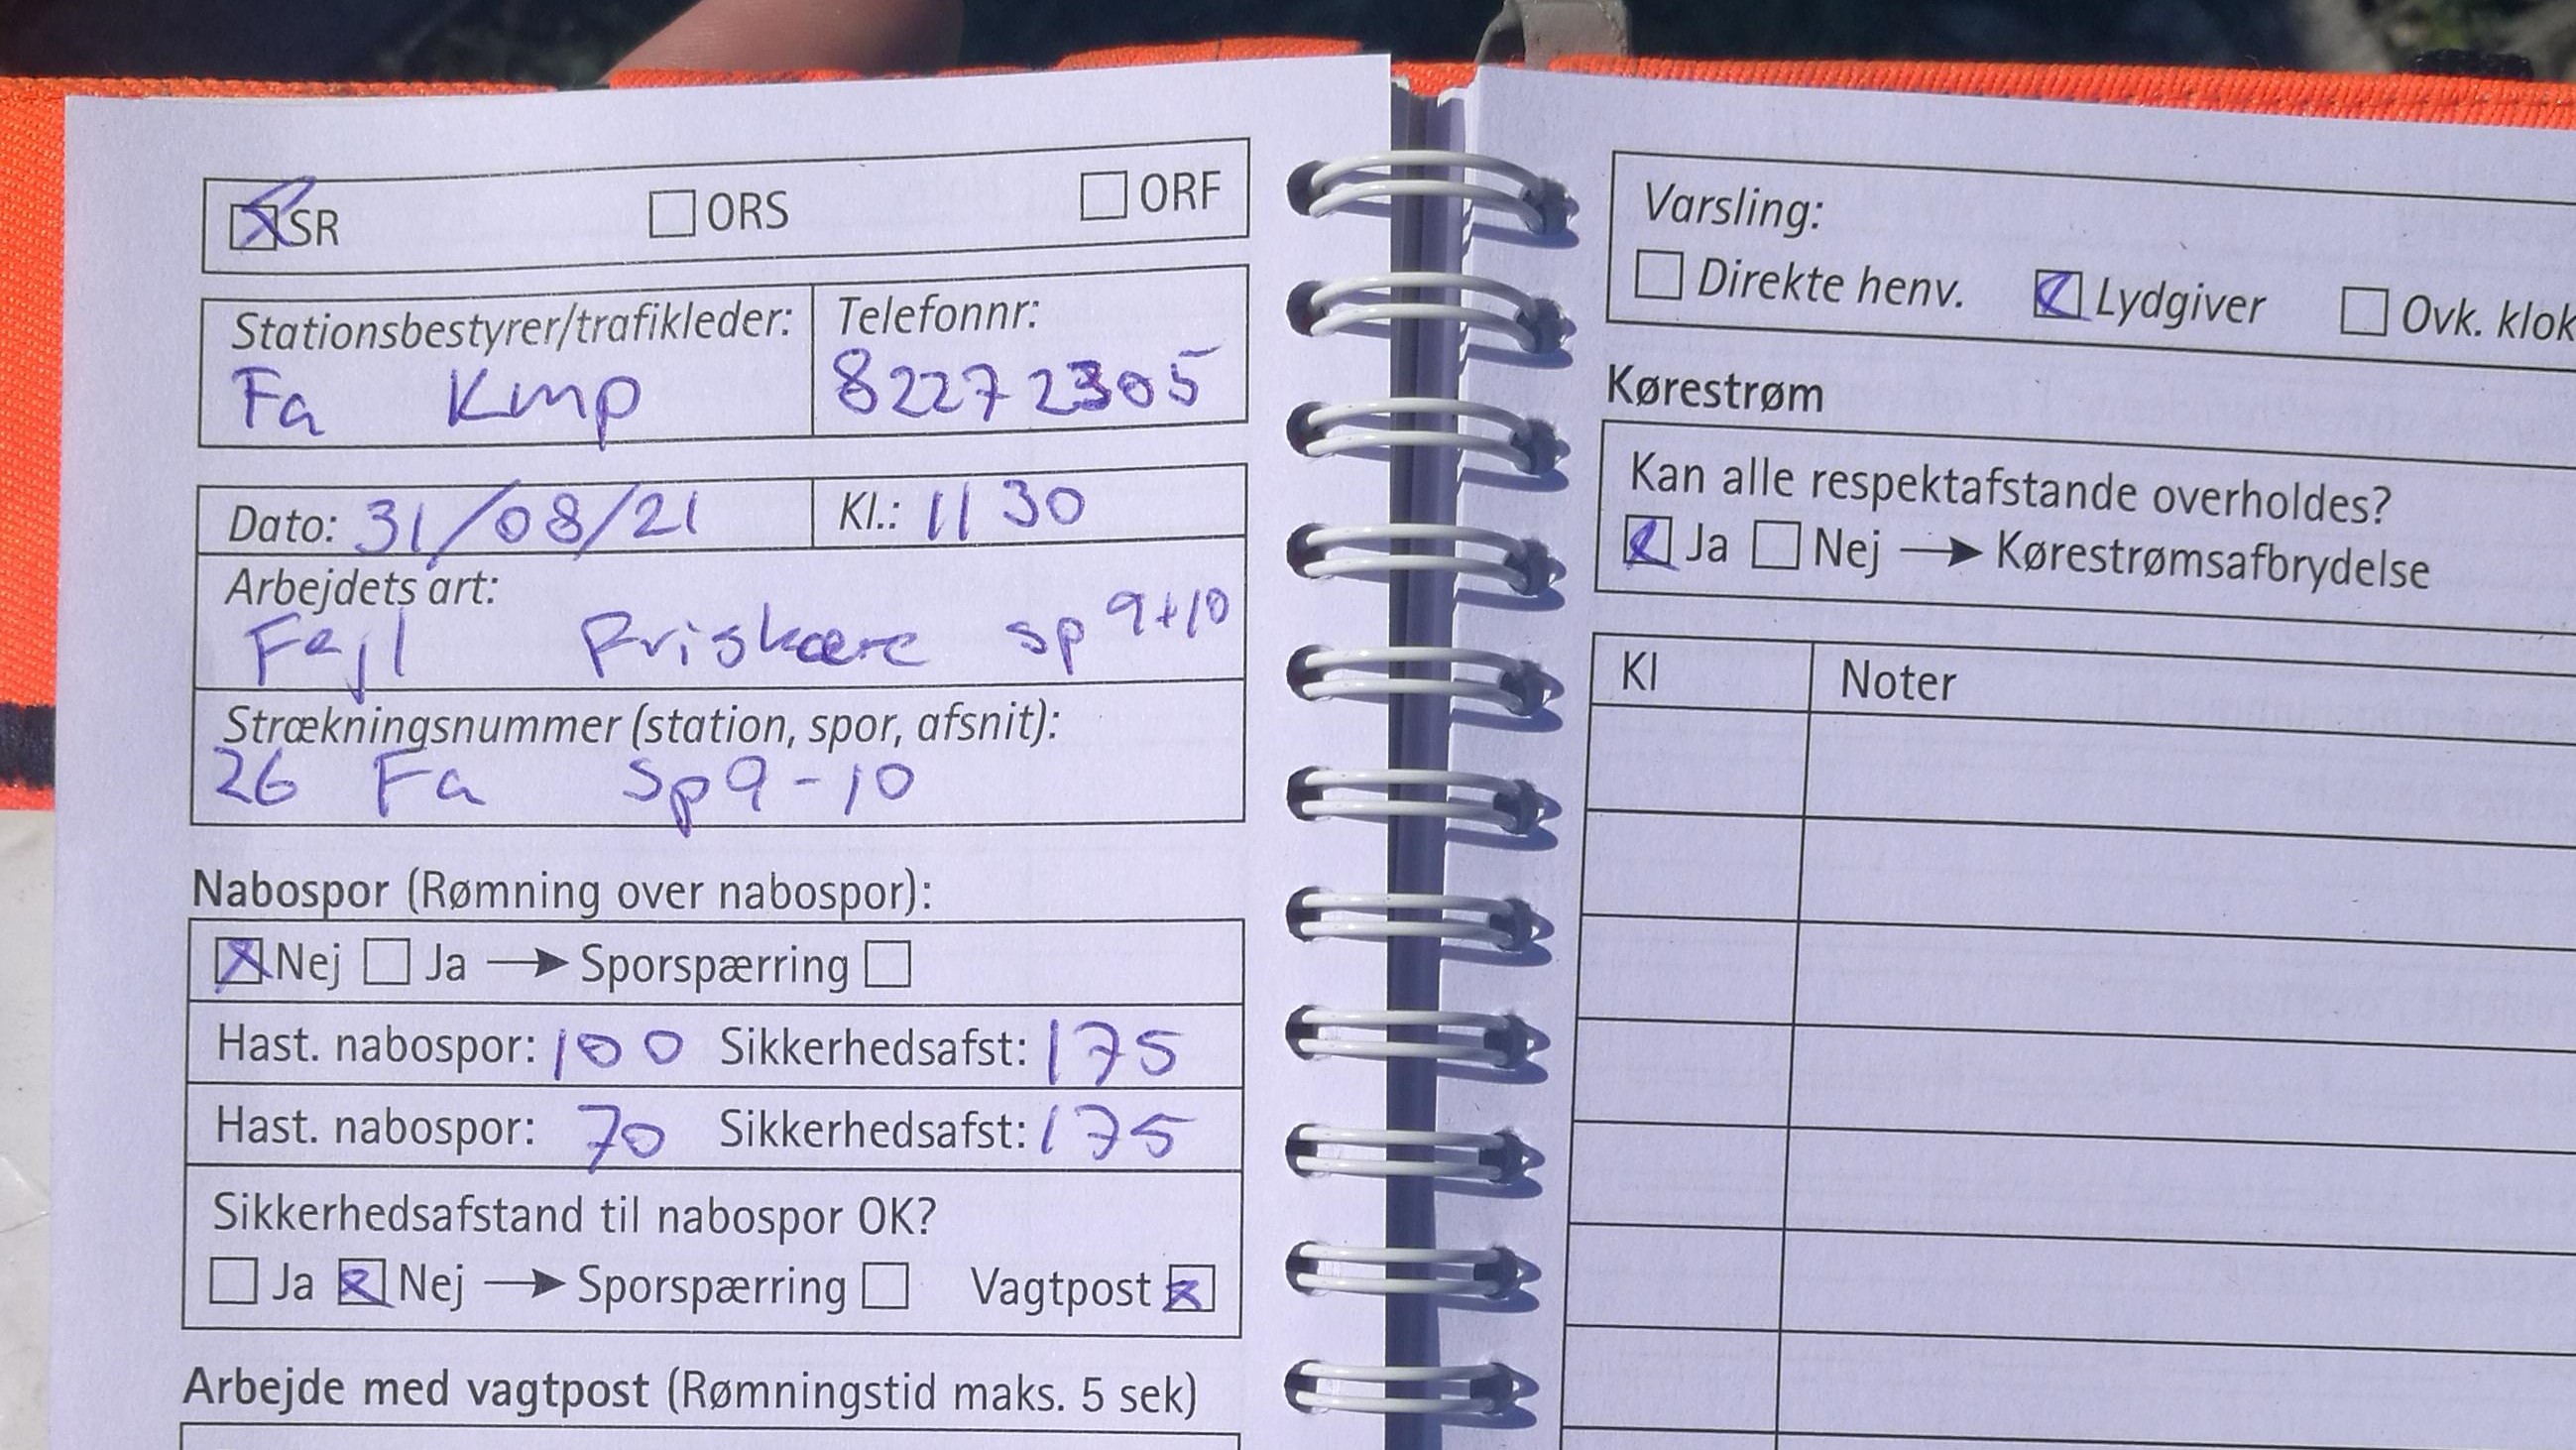 SR ORS ORF
Stationsbestyrer/trafikleder: Telefonnr:
Fa Kmp 82272305
Dato: 31/08/21 Kl.: 1130
Arbejdets art:
Fejl Friskære sp 9+10
Strækningsnummer (station, spor, afsnit):
26 Fa sp9-10
Nabospor (Rømning over nabospor):
Nej Ja → Sporspærring
Hast. nabospor: 100 Sikkerhedsafst: 175
Hast. nabospor: 70 Sikkerhedsafst: 175
Sikkerhedsafstand til nabospor OK?
Ja Nej → Sporspærring Vagtpost
Arbejde med vagtpost (Rømningstid maks. 5 sek)
Varsling:
Direkte henv. Lydgiver Ovk. klok
Kørestrøm
Kan alle respektafstande overholdes?
Ja Nej → Kørestrømsafbrydelse
Kl Noter